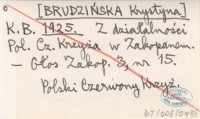 [BRUDZIŃSKA Krystyna]
K.B. 1925. Z działalności
Pol. Cz. Krzyża w Zakopanem.
– Głos Zakop. 3, nr 15.
Polski Czerwony Krzyż.